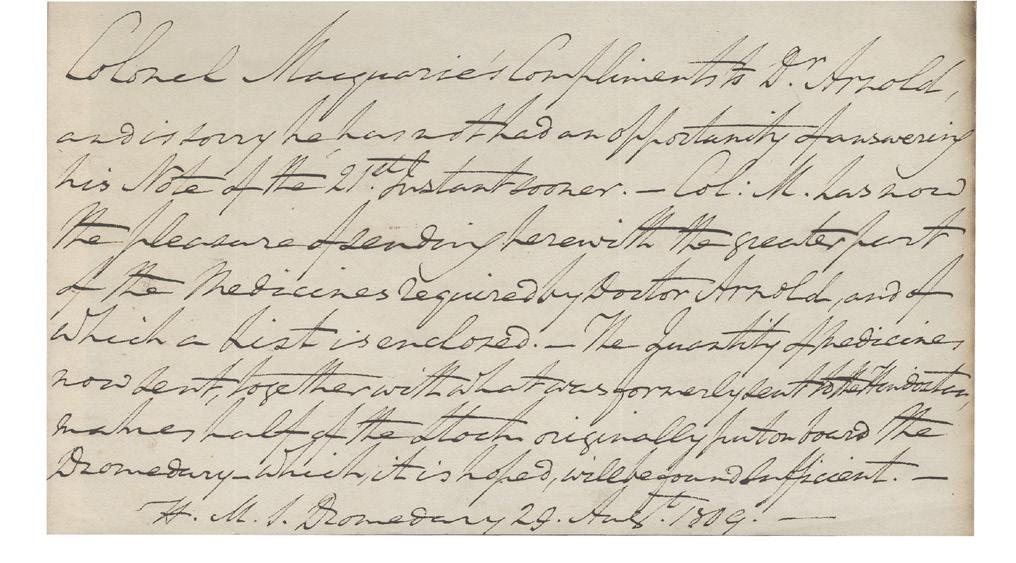 Colonel Macquarie's Compliments to Dr. Arnold,
and is sorry he has not had an opportunity of answering
his Note of the 21st. Instant sooner. — Col: M. has now
the pleasure of sending herewith the greater part
of the Medicines required by Doctor Arnold, and of
which a List is enclosed. — The Quantity of Medicines
now sent, together with what was formerly sent to the Hindostan,
makes half of the Stock originally put on board the
Dromedary — which, it is hoped, will be found sufficient. —
H. M. S. Dromedary 29. Augt. 1809. —